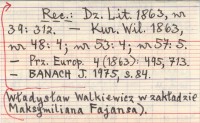 Rec.: Dz. Lit. 1863, nr
39: 312. — Kur. Wil. 1863,
nr 48: 4; nr 53: 4; nr 57: 5.
— Prz. Europ. 4 (1863): 495, 713.
— BANACH J. 1975, s. 84.
(Władysław Walkiewicz w zakładzie
Maksymiliana Fajansa).